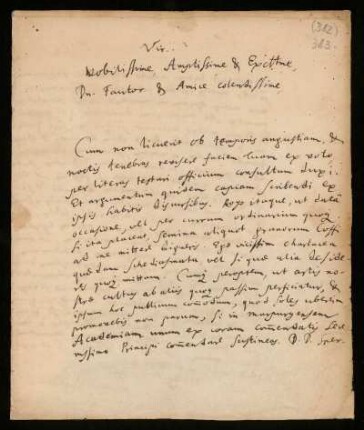 (312)
313.
Vir
Nobilissime Amplissime & Excell.me,
Dn. Fautor & Amice colendissime
Cum non licuerit ob temporis angustiam, &
noctis tenebras revisere faciem tuam ex voto
per literas testari officium consultum duxi.
Et argumentum quidem capiam scribendi ex
ipsis habitis discursibus. Rogo itaque, ut data
occasione, vel per currum ordinarium quoq
si ita placeat semina aliquot granorum Coffi
ad me mittere digneris. Ego vicissim
quædam schediasmata vel si quæ alia deside
res quoq mittam. Cumq semper, ut artis no
stræ cultus ab aliis quoq passim perficiatur, &
ipsum hoc publicum comodum, quod soles ubertim
promovebis non parum, si in marpurgensem
Academiam unum ex coram comendatis Sere
nissimo Principi comendare sustineas. D. D.